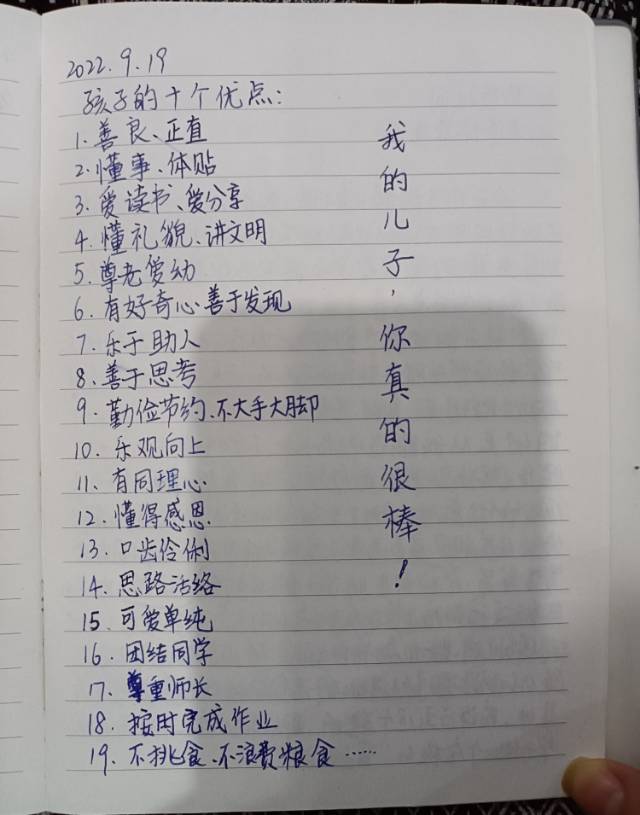 2022.9.19
孩子的十个优点:
1.善良、正直
2.懂事、体贴
3.爱读书、爱分享
4.懂礼貌、讲文明
5.尊老爱幼
6.有好奇心、善于发现
7.乐于助人
8.善于思考
9.勤俭节约、不大手大脚
10.乐观向上
11.有同理心
12.懂得感恩
13.口齿伶俐
14.思路活络
15.可爱单纯
16.团结同学
17.尊重师长
18.按时完成作业
19.不挑食、不浪费粮食……
我的儿子,你真的很棒!